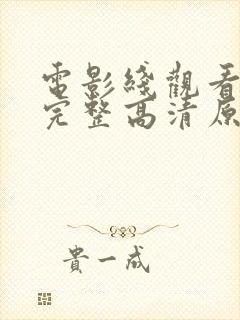 電影綫觀看
完整高清原
貴一成